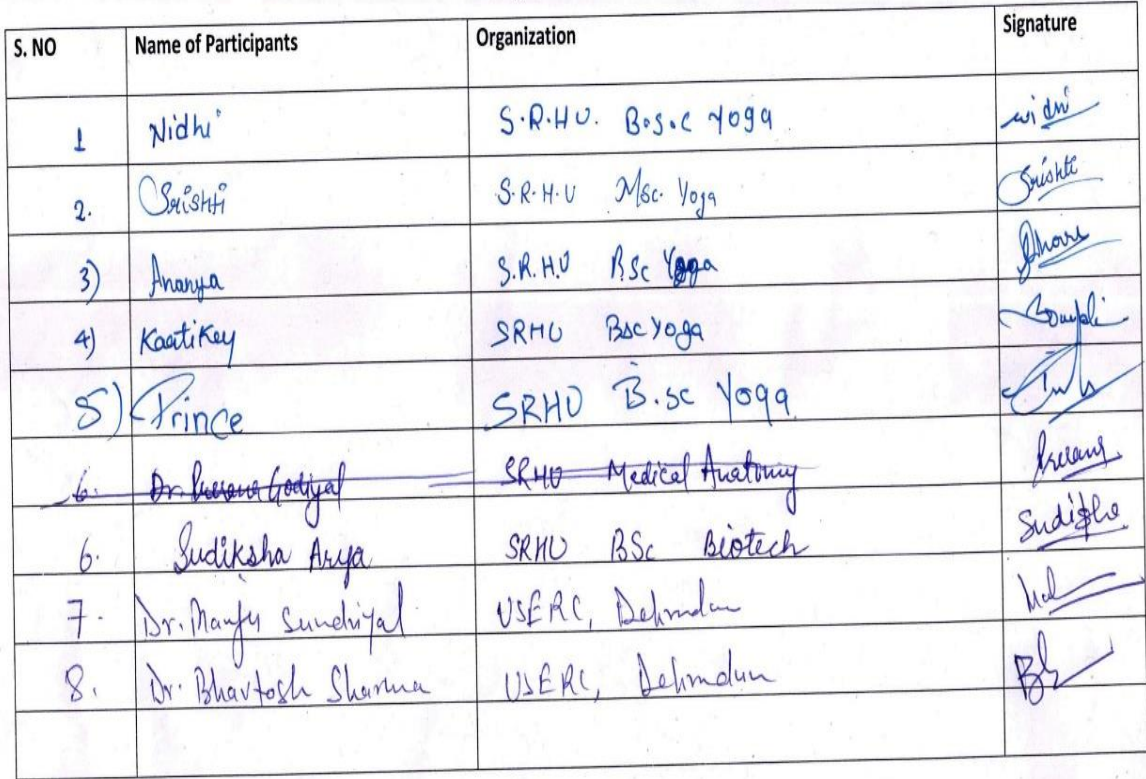 S. NO Name of Participants Organization Signature
1 Nidhi S.R.H.U. B.s.c Yoga Nidhi
2. Srishti S.R.H.U Msc. Yoga Srishti
3) Ananya S.R.H.U BSc Yoga
4) Kartikey SRHU Bsc Yoga
5) Prince SRHU B.sc Yoga
6. Dr. Godiyal SRHU Medical Anatomy
6. Sudiksha Arya SRHU BSc Biotech Sudiksha
7. Dr. Manju Sundriyal USERC, Dehradun
8. Dr. Bhavtosh Sharma USERC, Dehradun